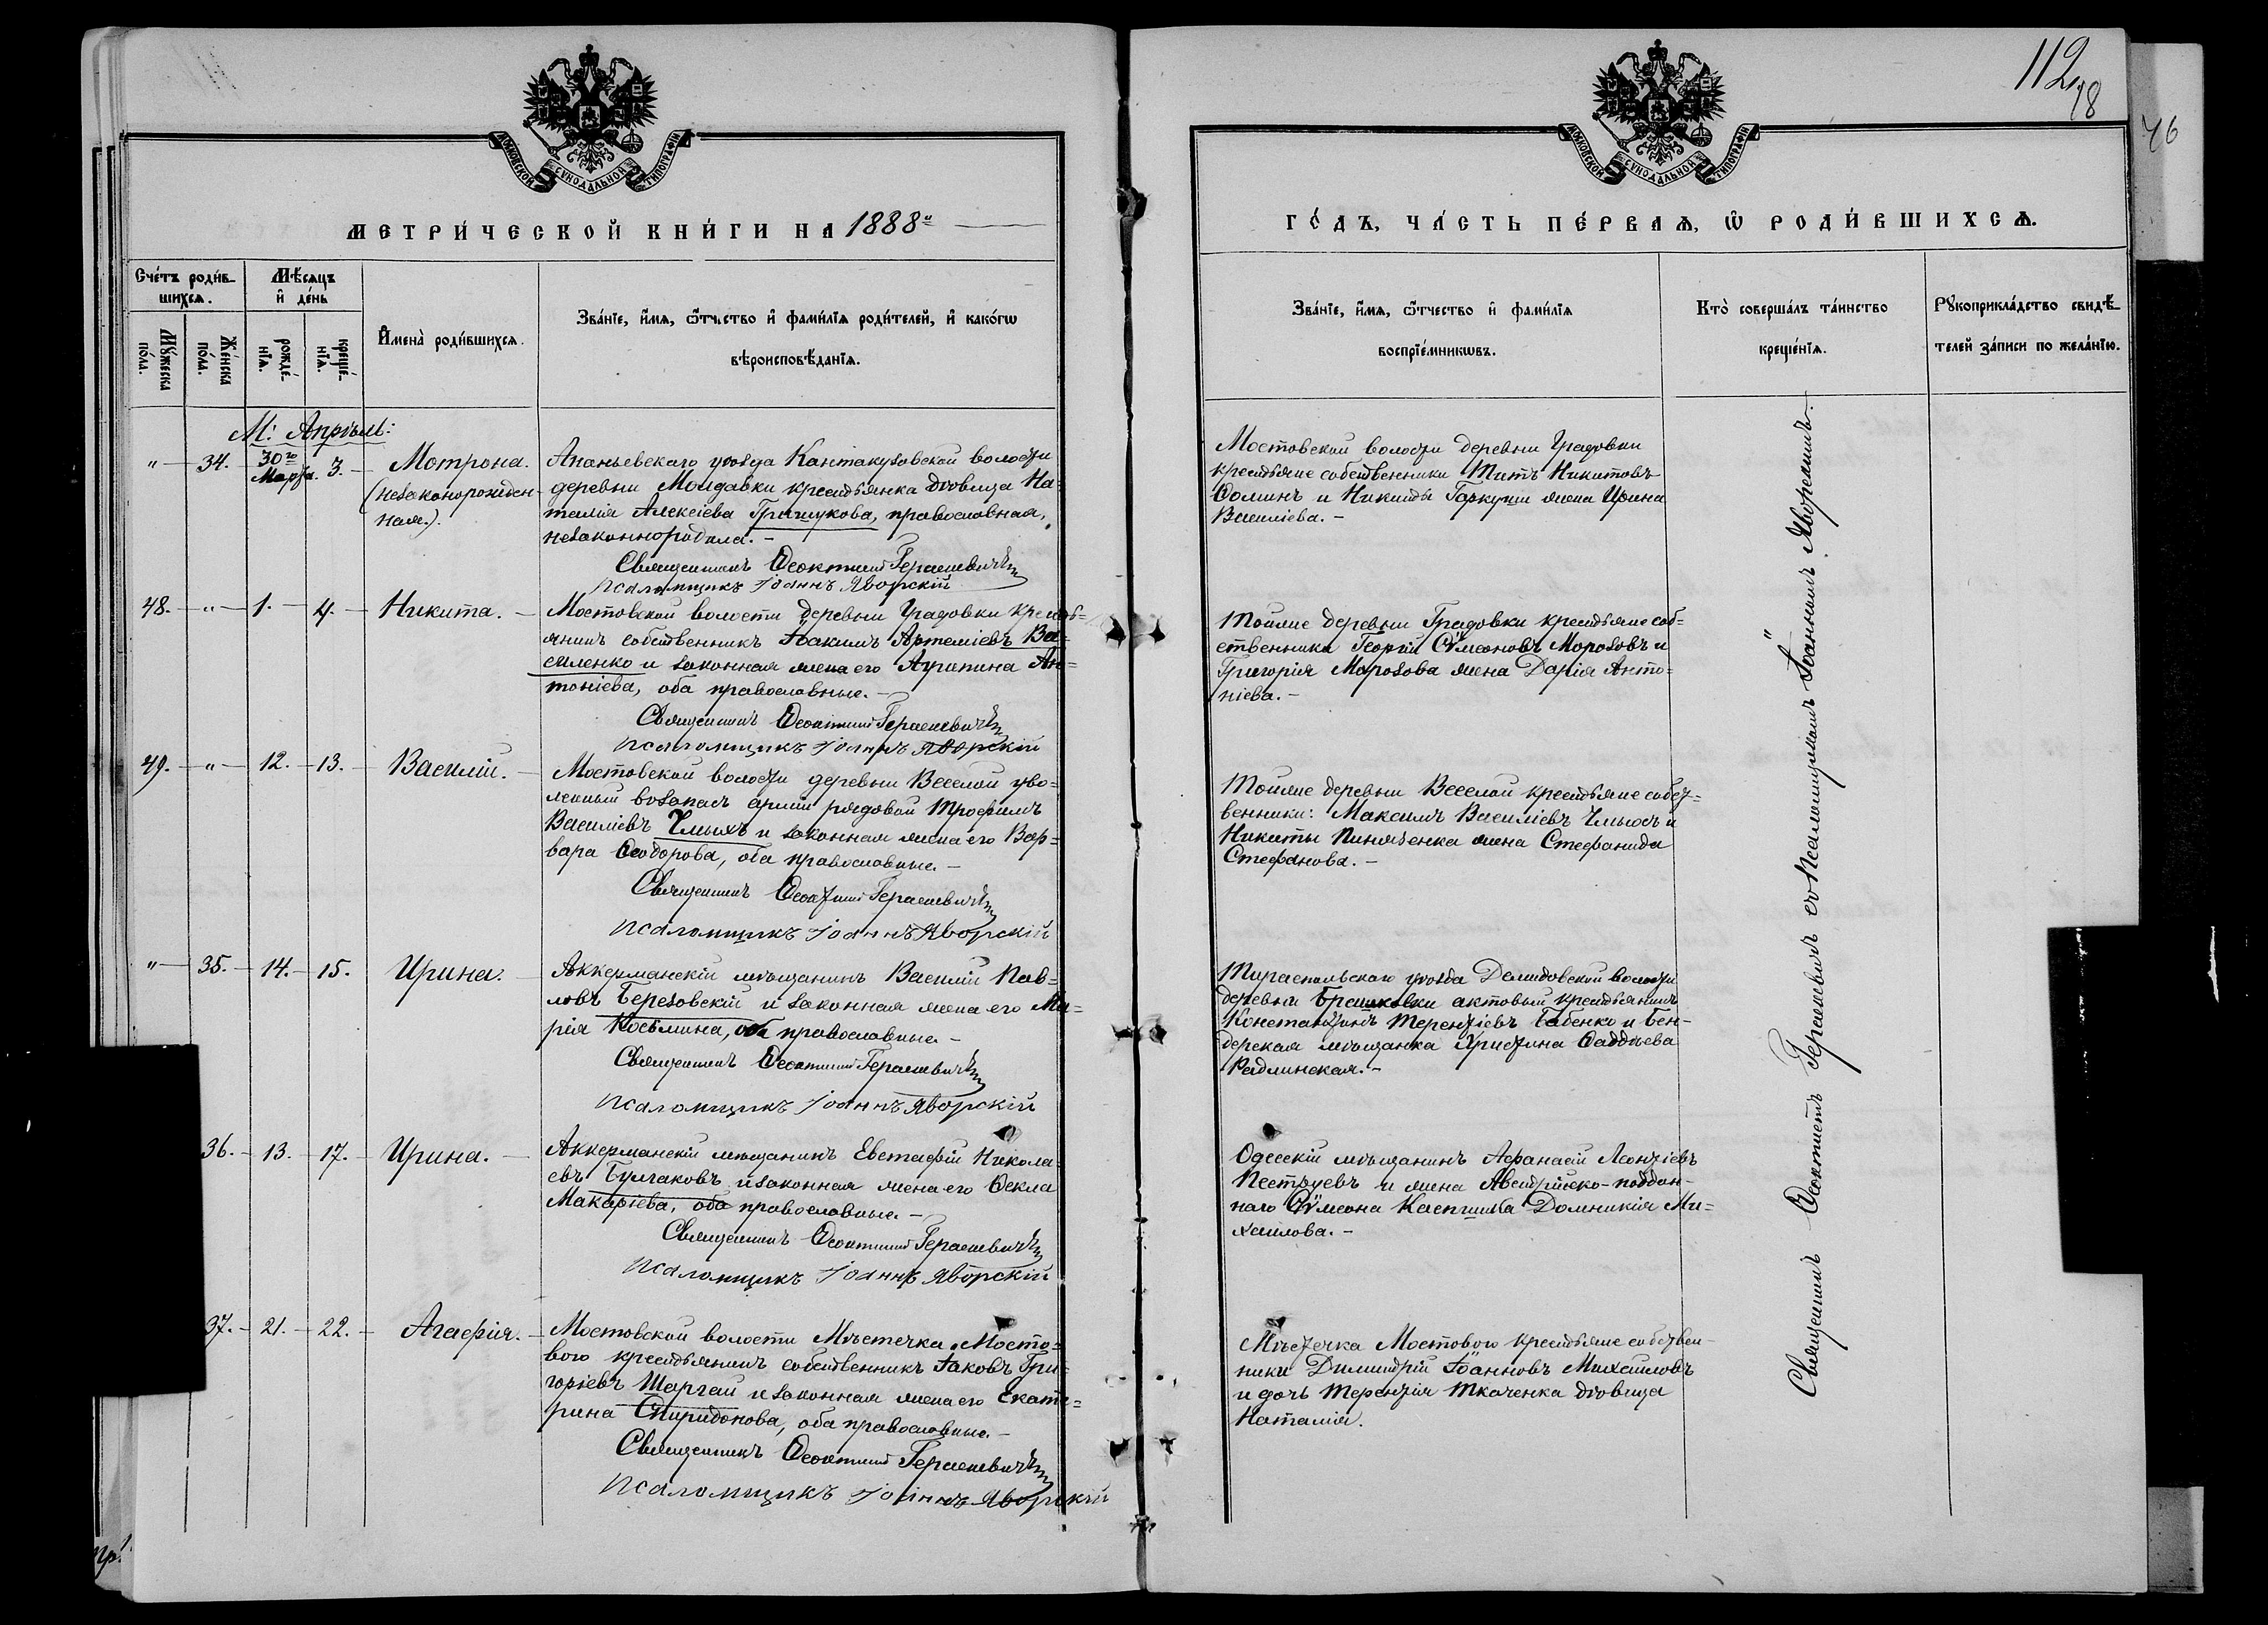 112
78
76
МОСКОВСКОЙ СѴНОДАЛЬНОЙ ТИПОГРАФІИ
МОСКОВСКОЙ СѴНОДАЛЬНОЙ ТИПОГРАФІИ
МЕТРИ́ЧЕСКОЙ КНИ́ГИ НА 1888й
ГО́ДЪ, ЧА́СТЬ ПЕ́РВАѦ, Ѿ РОДИ́ВШИХСѦ.
Сче́тъ роди́в-
шихсѧ.
Мѣ́сяцъ
и҆ де́нь
Мꙋ́жеска по́ла.
Же́нска по́ла.
рожде́-
нїѧ.
креще́-
нїѧ.
И҆мена̀ роди́вшихсѧ.
Зва́нїе, и҆́мѧ, ѻ҆́тчество и҆ фами́лїѧ роди́телей, и҆ како́гѡ
вѣроисповѣ́данїѧ.
Зва́нїе, и҆́мѧ, ѻ҆́тчество и҆ фами́лїѧ
воспрїе́мникѡвъ.
Кто̀ соверша́лъ та́инство
креще́нїѧ.
Рꙋкоприкла́дство свидѣ́-
телей за́писи по жела́нїю.
М: Апрѣль:
" 34. 30го Марта. 3. Мотрона.
(незаконорожден-
ная.).
Ананьевскаго уѣзда Кантакузовской волости
деревни Молдавки крестьянка дѣвица На-
талія Алексіева Грищукова, православная,
незаконнородила. -
Священникъ Ѳеоктистъ Герасевичъ
Псаломщикъ Іоаннъ Яворскій
Мостовской волости деревни Градовки
крестьяне собственники Титъ Никитовъ
Ѳоминъ и Никиты Горкуши жена Ирина
Василіева. -
48. " 1. 4. Никита.
Мостовской волости деревни Градовки кресть=
янинъ собственникъ Іоакимъ Артеміевъ Ва=
силенко и законная жена его Агрипина Ан=
тоніева, оба православные. -
Священникъ Ѳеоктистъ Герасевичъ
Псаломщикъ Іоаннъ Яворскій
Тойже деревни Градовки крестьяне соб-
ственники Георгій Сѷмеоновъ Морозовъ и
Григорія Морозова жена Дарія Анто=
ніева. -
49. " 12. 13. Василій.
Мостовской волости деревни Веселой уво=
ленный возапасъ арміи рядовой Трофимъ
Василіевъ Чмыхъ и законная жена его Вар=
вара Ѳеодорова, оба православные. -
Священникъ Ѳеоктистъ Герасевичъ
Псаломщикъ Іоаннъ Яворскій
Тойже деревни Веселой крестьяне собст=
венники: Максимъ Василіевъ Чмыхъ и
Никиты жена Стефанида
Стефанова. -
" 35. 14. 15. Ирина.
Аккерманскій мѣщанинъ Василій Пав=
ловъ Березовскій и законная жена его Ма=
рія Козьмина, оба православные. -
Священникъ Ѳеоктистъ Герасевичъ
Псаломщикъ Іоаннъ Яворскій
Тираспольскаго уѣзда Демидовской волости
деревни актовый крестьянинъ
Константинъ Терентіевъ Бабенко и Бен-
дерская мѣщанка Христина Ѳаддѣева
Радлинская. -
36. 13. 17. Ирина.
Аккерманскій мѣщанинъ Евстафій Никола=
евъ Булгаковъ и законная жена его Ѳекла
Макаріева, оба православные. -
Священникъ Ѳеоктистъ Герасевичъ
Псаломщикъ Іоаннъ Яворскій
Одесскій мѣщанинъ Афанасій Леонтіевъ
Пеструевъ и жена Австрійско-поддан-
наго Сѷмеона Домникія Ми=
хаилова. -
37. 21. 22. Агафія.
Мостовской волости Мѣстечка Мосто=
вого крестьянинъ собственникъ Іаковъ Гри-
горіевъ Шаргай и законная жена его Екате=
рина Спиридонова, оба православные. -
Священникъ Ѳеоктистъ Герасевичъ
Псаломщикъ Іоаннъ Яворскій
Мѣстечка Мостового крестьяне собствен-
ники Димитрій Іоанновъ Михайловъ
и дочь Терентія Ткаченка дѣвица
Наталія.
Священникъ Ѳеоктистъ Герасевичъ съ Псаломщикомъ Іоанномъ Яворскимъ.